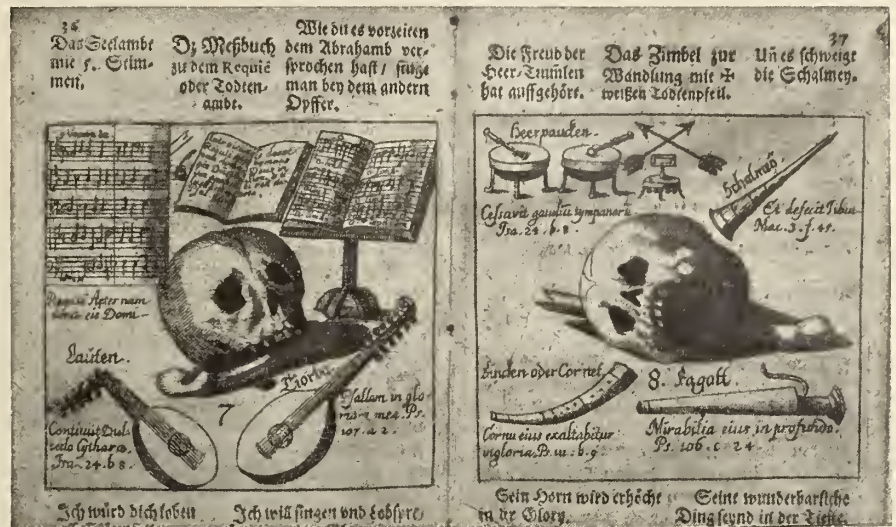 36
Das Seelambt
mit 5. Stim-
men.
Dz Meßbuch
zu dem Requiē
oder Todten-
ambt.
Wie du es vorzeiten
dem Abrahamb ver-
sprochen hast / singt
man bey dem andern
Opffer.
Lauten.
Continuit Dul-
cedo Cythara.
Isa. 24. b 8.
7
Tiorba
Psallam in glo
ria mea. Ps.
107. a 2.
Ich würd dich loben
Ich will singen vnd Lobspre-
37
Die Freud der
Heer-Trumlen
hat auffgehört.
Das Zimbel zur
Wandlung mit ✠
weißen Todtenpfeil.
Uñ es schweigt
die Schalmey.
Heerpaucken.
Cessavit gaudiū tympanorū
Isa. 24. b. 8.
Schalmeÿ
Et defecit Tibia
Mac. 3. f. 45.
Zincken oder Cornet.
Cornu eius exaltabitur
in gloria. Ps. 111. b. 9
8. Fagott
Mirabilia eius in profundo.
Ps. 106. c. 24
Sein Horn wird erhöcht
in dr Glory.
Seine wunderbarliche
Ding seynd in der Tieffe.